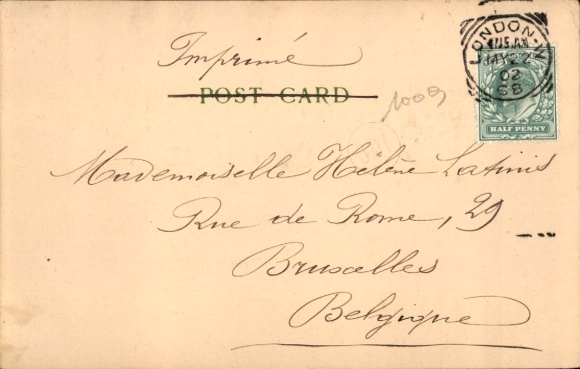 Imprimé
POST CARD
1009
LONDON.W
11.15.AM
MY 22
02
68
HALF PENNY
Mademoiselle Hélène Latinis
Rue de Rome, 29
Bruxelles
Belgique